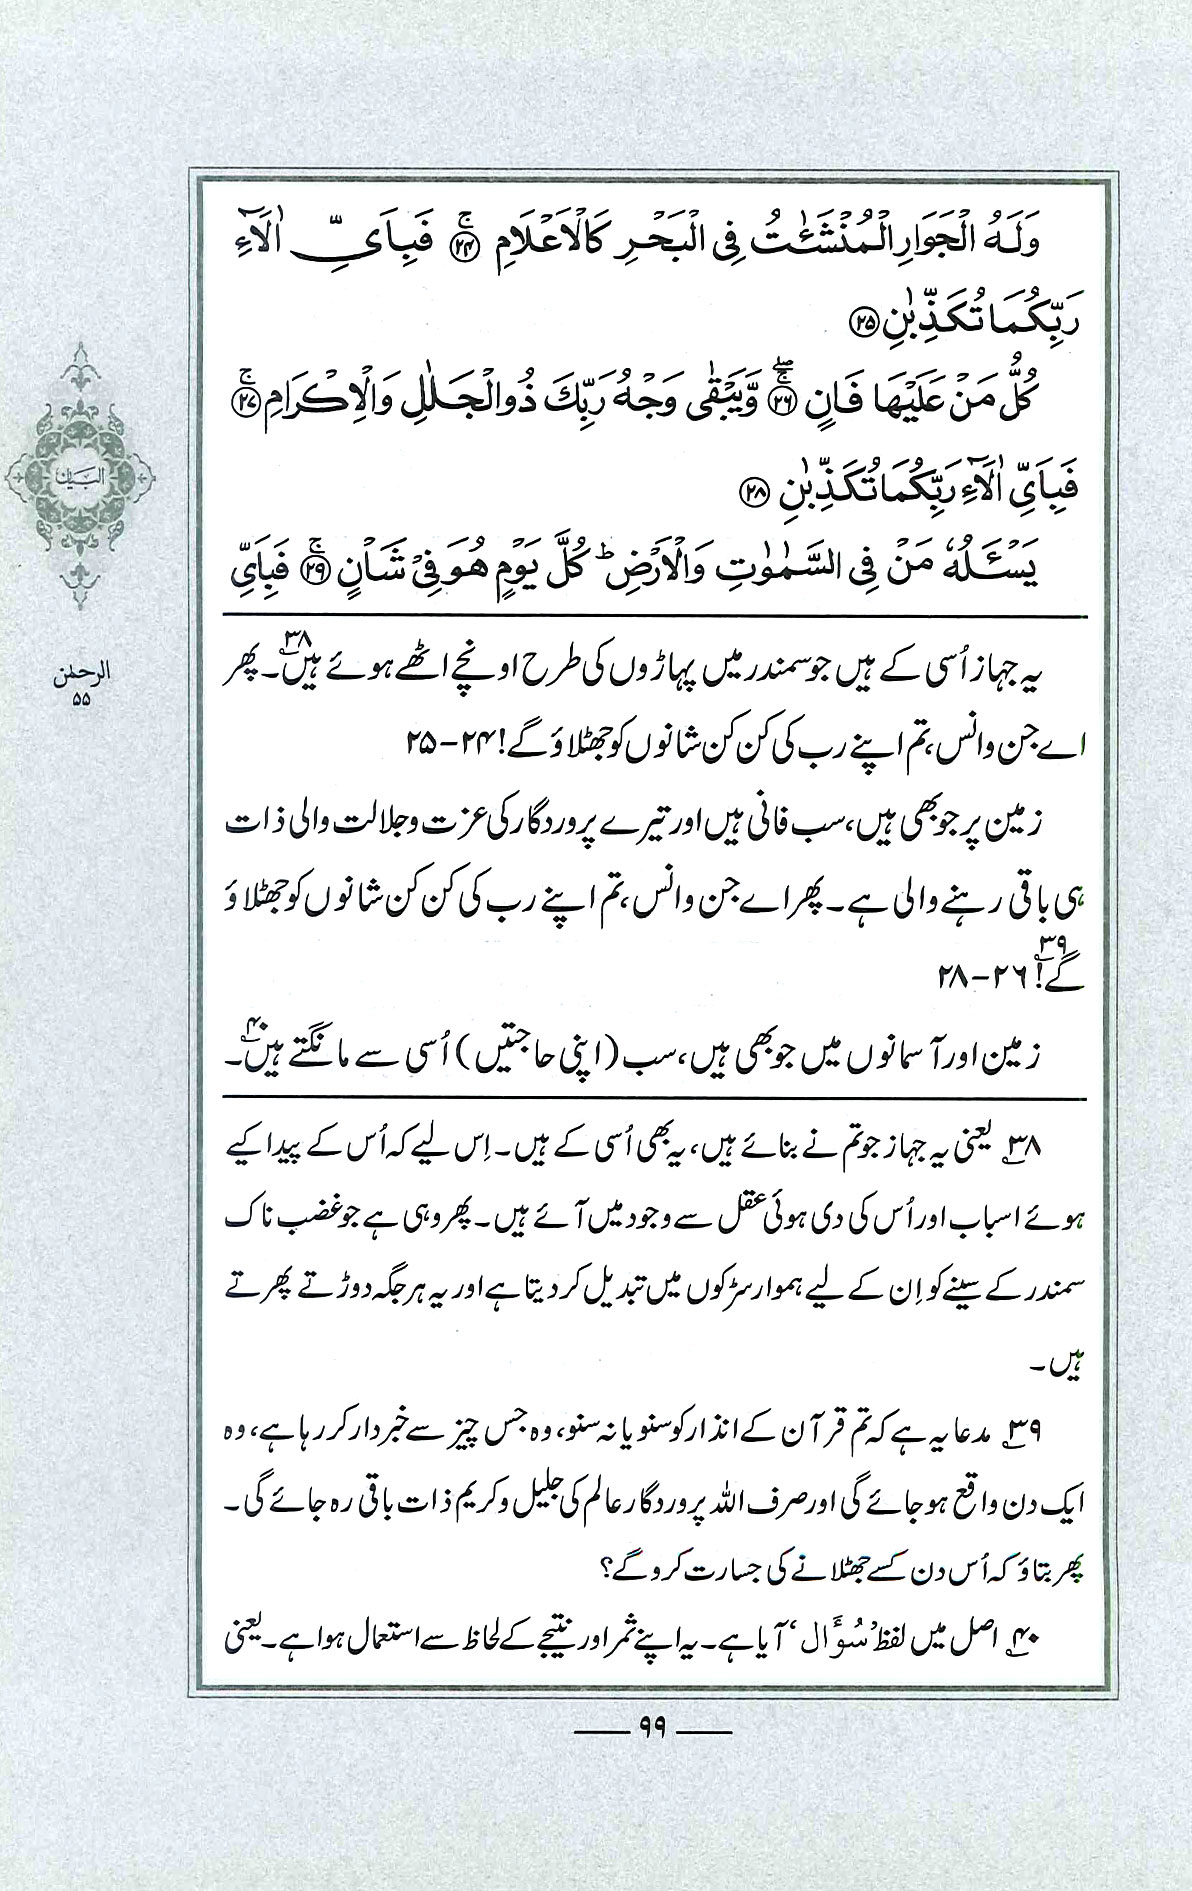 وَلَهُ الْجَوَارِ الْمُنْشَئٰتُ فِى الْبَحْرِ كَالْاَعْلَامِ ﴿۲۴﴾ۚ فَبِاَىِّ اٰلَآءِ
رَبِّكُمَا تُكَذِّبٰنِ ﴿۲۵﴾
كُلُّ مَنْ عَلَيْهَا فَانٍ ﴿۲۶﴾ۚۖ وَّيَبْقٰى وَجْهُ رَبِّكَ ذُو الْجَلٰلِ وَالْاِكْرَامِ ﴿۲۷﴾ۚ
فَبِاَىِّ اٰلَآءِ رَبِّكُمَا تُكَذِّبٰنِ ﴿۲۸﴾
يَسْئَلُهٗ مَنْ فِى السَّمٰوٰتِ وَالْاَرْضِ ؕ كُلَّ يَوْمٍ هُوَ فِىْ شَاْنٍ ﴿۲۹﴾ۚ فَبِاَىِّ
البیان
الرحمٰن
۵۵
یہ جہاز اُسی کے ہیں جو سمندر میں پہاڑوں کی طرح اونچے اٹھے ہوئے ہیں۳۸۔ پھر
اے جن و انس، تم اپنے رب کی کن کن شانوں کو جھٹلاؤ گے! ۲۴-۲۵
زمین پر جو بھی ہیں، سب فانی ہیں اور تیرے پروردگار کی عزت و جلالت والی ذات
ہی باقی رہنے والی ہے۔ پھر اے جن و انس، تم اپنے رب کی کن کن شانوں کو جھٹلاؤ
گے!۳۹ ۲۶-۲۸
زمین اور آسمانوں میں جو بھی ہیں، سب (اپنی حاجتیں) اُسی سے مانگتے ہیں۴۰۔
۳۸ یعنی یہ جہاز جو تم نے بنائے ہیں، یہ بھی اُسی کے ہیں۔ اِس لیے کہ اُس کے پیدا کیے
ہوئے اسباب اور اُس کی دی ہوئی عقل سے وجود میں آئے ہیں۔ پھر وہی ہے جو غضب ناک
سمندر کے سینے کو اِن کے لیے ہموار سڑکوں میں تبدیل کر دیتا ہے اور یہ ہر جگہ دوڑتے پھرتے
ہیں۔
۳۹ مدعا یہ ہے کہ تم قرآن کے انذار کو سنو یا نہ سنو، وہ جس چیز سے خبردار کر رہا ہے، وہ
ایک دن واقع ہو جائے گی اور صرف اللہ پروردگار عالم کی جلیل و کریم ذات باقی رہ جائے گی۔
پھر بتاؤ کہ اُس دن کسے جھٹلانے کی جسارت کرو گے؟
۴۰ اصل میں لفظ ’سُؤَال‘ آیا ہے۔ یہ اپنے ثمر اور نتیجے کے لحاظ سے استعمال ہوا ہے۔ یعنی
۹۹